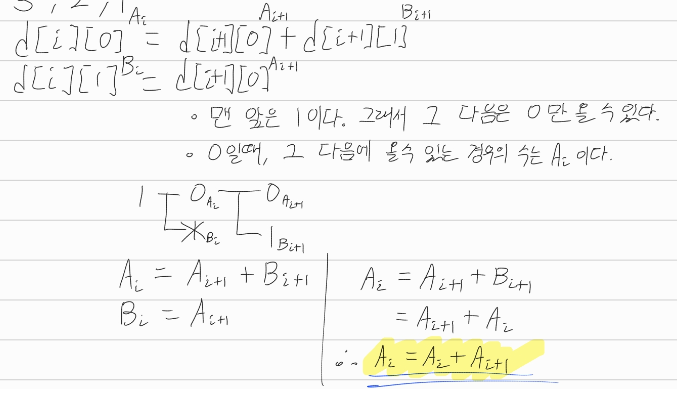 A_i A_{i+1} B_{i+1}
d[i][0] = d[i+1][0] + d[i+1][1]
d[i][1] B_i = d[i+1][0] A_{i+1}
• 맨 앞은 1이다. 그래서 그 다음은 0만 올 수 있다.
• 0일때, 그 다음에 올수 있는 경우의 수는 A_i 이다.
1 0_{A_i} 0_{A_{i+1}}
X_{B_i} 1_{B_{i+1}}
A_i = A_{i+1} + B_{i+1}
B_i = A_{i+1}
A_i = A_{i+1} + B_{i+1}
= A_{i+1} + A_i
∴ A_i = A_i + A_{i+1}